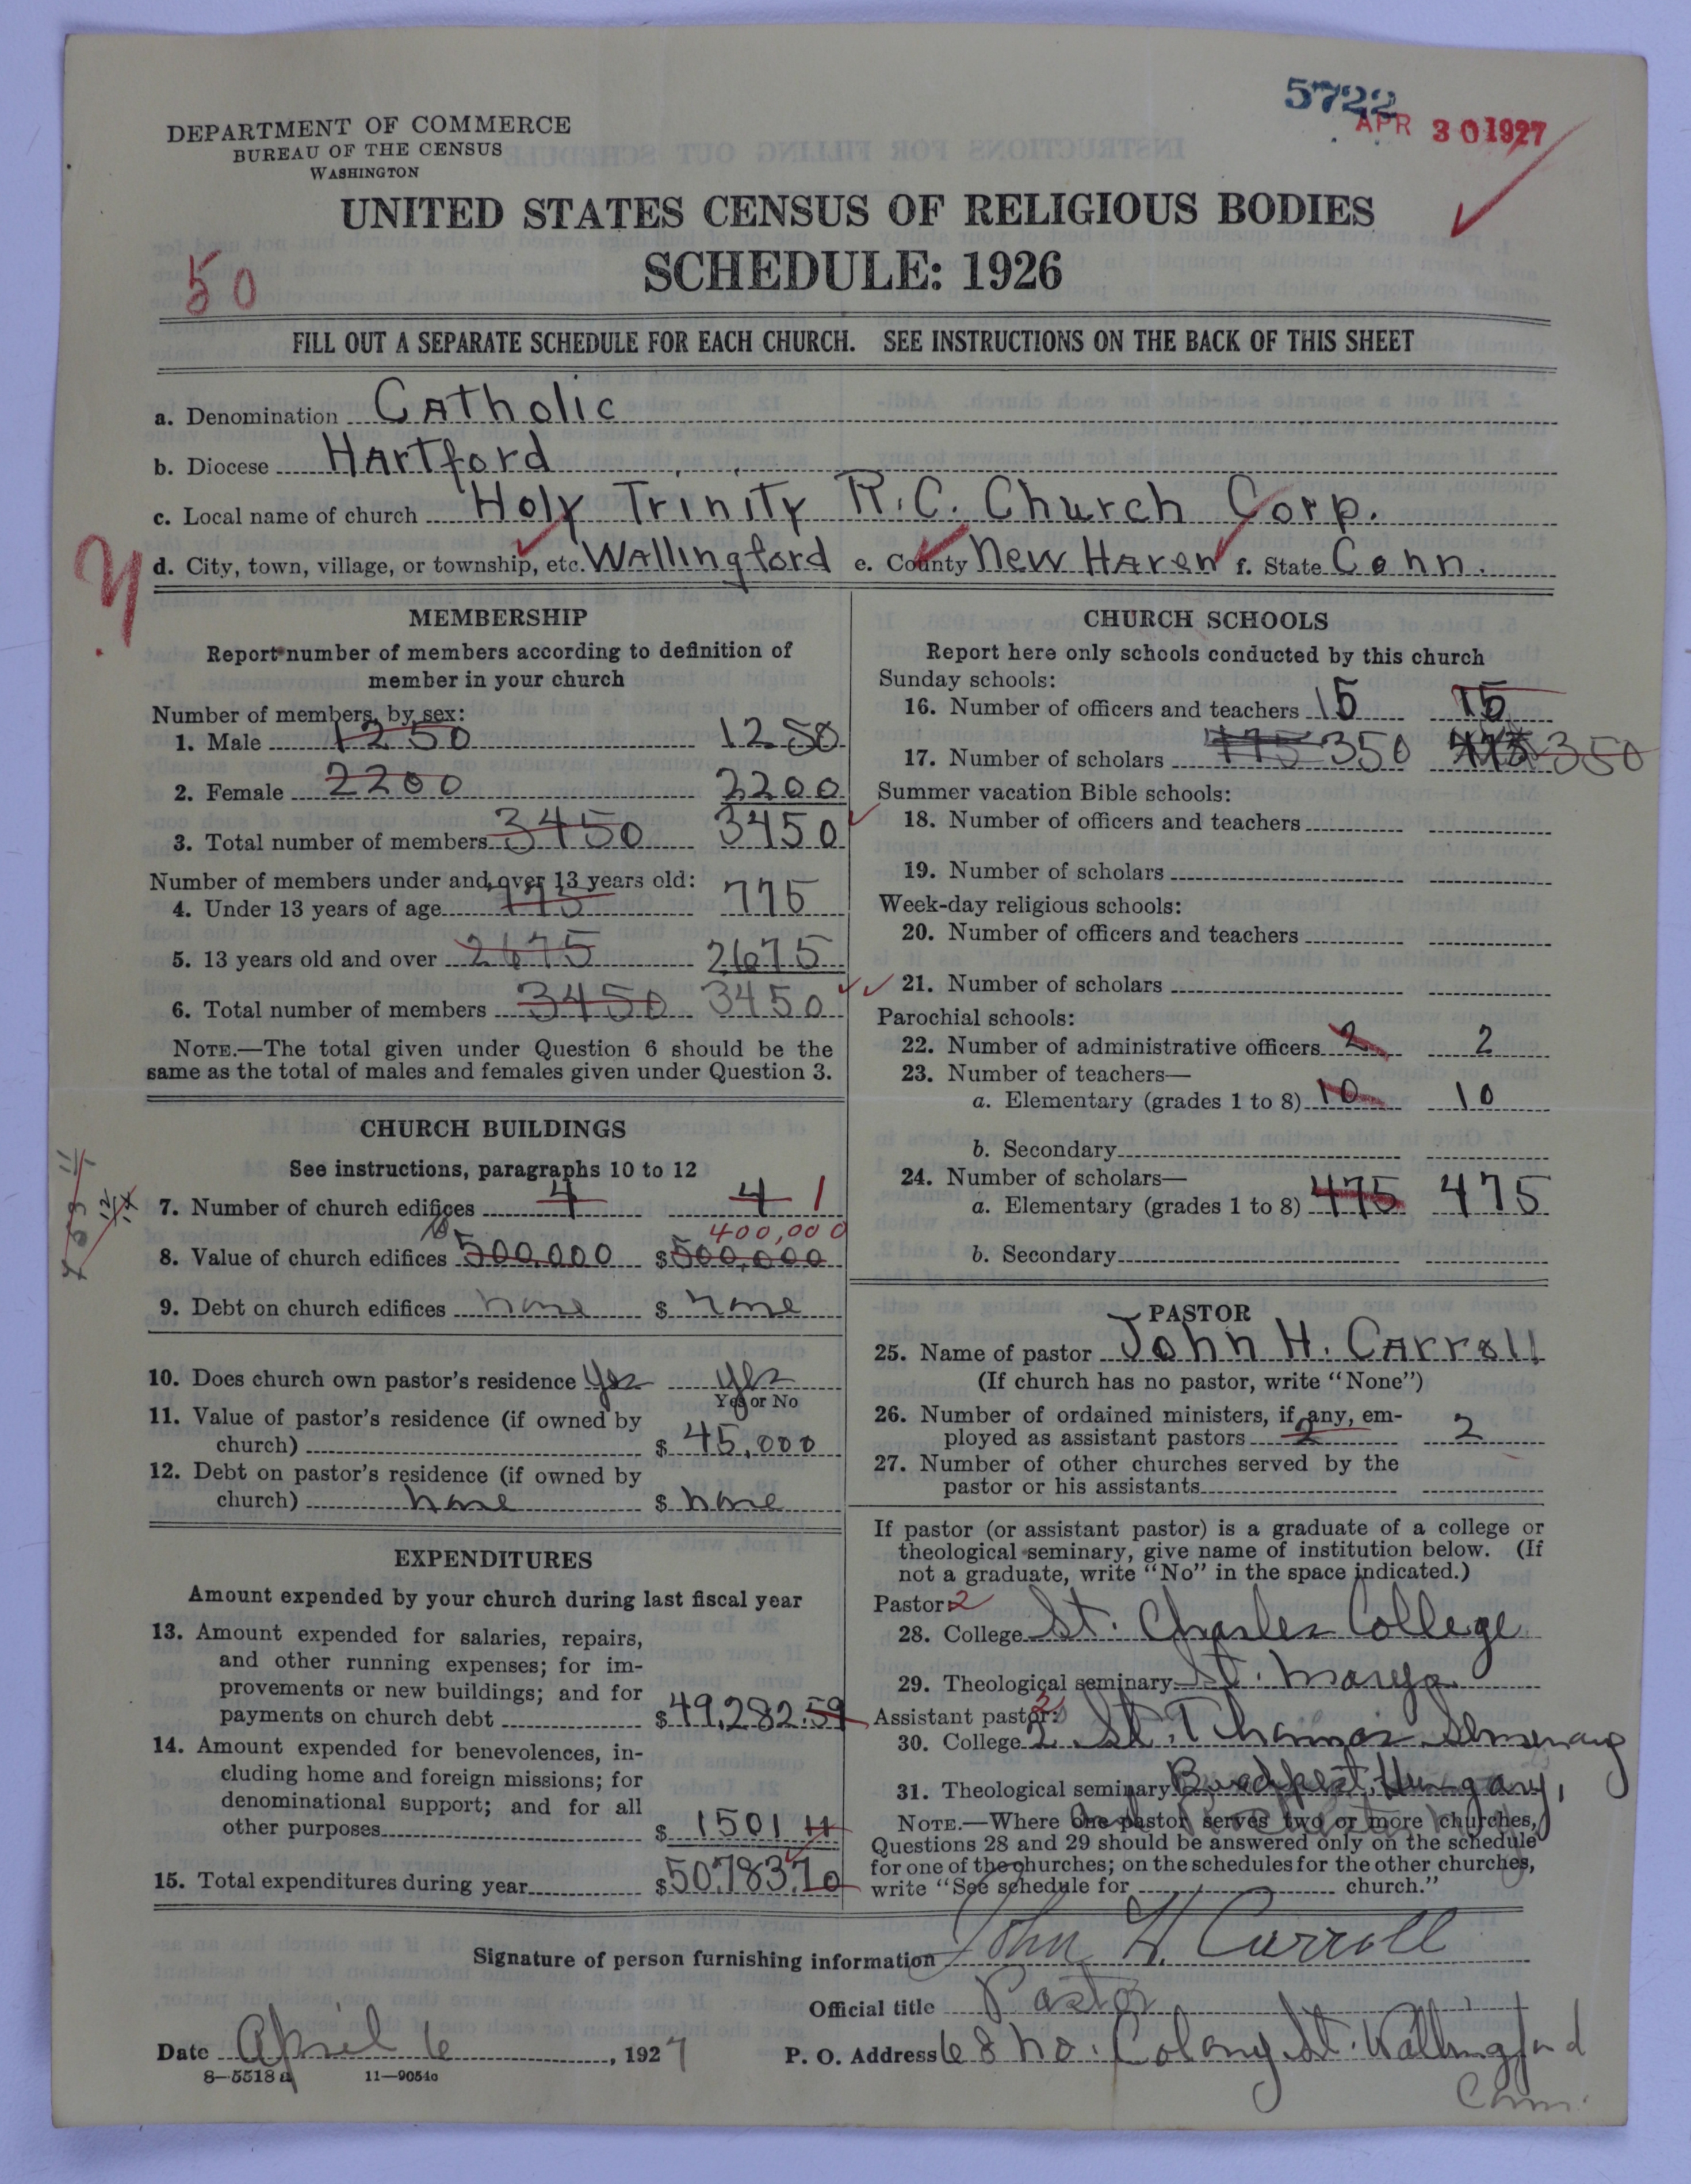 5722
APR 30 1927
DEPARTMENT OF COMMERCE
BUREAU OF THE CENSUS
WASHINGTON
UNITED STATES CENSUS OF RELIGIOUS BODIES
SCHEDULE: 1926
50
FILL OUT A SEPARATE SCHEDULE FOR EACH CHURCH. SEE INSTRUCTIONS ON THE BACK OF THIS SHEET
a. Denomination Catholic
b. Diocese Hartford
c. Local name of church Holy Trinity R.C. Church Corp.
d. City, town, village, or township, etc. Wallingford e. County New Haven f. State Conn.
MEMBERSHIP
Report number of members according to definition of
member in your church
Number of members, by sex:
1. Male 1250 1250
2. Female 2200 2200
3. Total number of members 3450 3450
Number of members under and over 13 years old:
4. Under 13 years of age 775 775
5. 13 years old and over 2675 2675
6. Total number of members 3450 3450
NOTE.—The total given under Question 6 should be the
same as the total of males and females given under Question 3.
CHURCH BUILDINGS
See instructions, paragraphs 10 to 12
7. Number of church edifices 4 4 1
400,000
8. Value of church edifices 500,000 $500,000
9. Debt on church edifices none $ none
10. Does church own pastor's residence Yes Yes
Yes or No
11. Value of pastor's residence (if owned by
church) $ 45,000
12. Debt on pastor's residence (if owned by
church) none $ none
EXPENDITURES
Amount expended by your church during last fiscal year
13. Amount expended for salaries, repairs,
and other running expenses; for im-
provements or new buildings; and for
payments on church debt $49,282.59
14. Amount expended for benevolences, in-
cluding home and foreign missions; for
denominational support; and for all
other purposes $ 1501 11
15. Total expenditures during year $50,783.70
CHURCH SCHOOLS
Report here only schools conducted by this church
Sunday schools:
16. Number of officers and teachers 15 15
17. Number of scholars 775 350 350
Summer vacation Bible schools:
18. Number of officers and teachers
19. Number of scholars
Week-day religious schools:
20. Number of officers and teachers
21. Number of scholars
Parochial schools:
22. Number of administrative officers 2 2
23. Number of teachers—
a. Elementary (grades 1 to 8) 10 10
b. Secondary
24. Number of scholars—
a. Elementary (grades 1 to 8) 475 475
b. Secondary
PASTOR
25. Name of pastor John H. Carroll
(If church has no pastor, write "None")
26. Number of ordained ministers, if any, em-
ployed as assistant pastors 2 2
27. Number of other churches served by the
pastor or his assistants
If pastor (or assistant pastor) is a graduate of a college or
theological seminary, give name of institution below. (If
not a graduate, write "No" in the space indicated.)
Pastor: 2
28. College St. Charles College
29. Theological seminary St. Marys
Assistant pastor:
30. College 2 St. Thomas Seminary
31. Theological seminary Budapest, Hungary,
NOTE.—Where one pastor serves two or more churches,
Questions 28 and 29 should be answered only on the schedule
for one of the churches; on the schedules for the other churches,
write "See schedule for church."
Signature of person furnishing information John H. Carroll
Official title Pastor
Date April 6, 1927 P. O. Address 68 No. Colony St. Wallingford
Conn.
8—5518 a 11—9054c